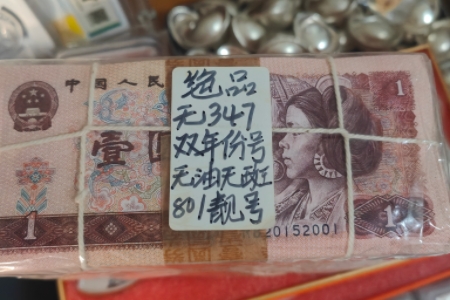 中国人民
绝品
无347
双年份号
无油无斑
801靓号
壹
1
1
1
20152001